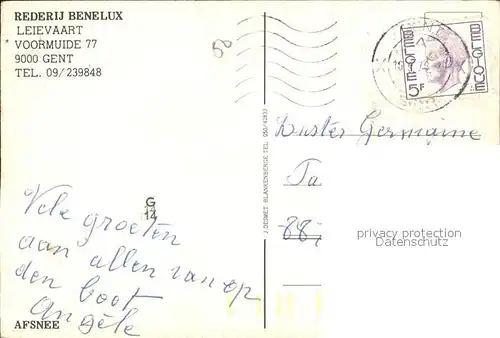 REDERIJ BENELUX
LEIEVAART
VOORMUIDE 77
9000 GENT
TEL. 09/239848
50
BELGIE
5F
BELGIQUE
J. DESMET BLANKENBERGE TEL. 050/42832
Zuster Germaine
Ta
887
privacy protection
Datenschutz
G
14
Vele groeten
aan allen van op
den boot
Angèle
AFSNEE